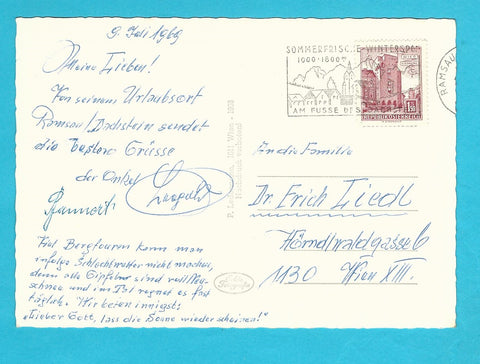 9. Juli 1969
Meine Lieben!
Von seinem Urlaubsort
Ramsau/Dachstein sendet
die besten Grüsse
der Onkel
Leopold
Viel Bergtouren kann man
infolge Schlechtwetter nicht machen,
denn alle Gipfeln sind voll Neu-
schnee und im Tal regnet es fast
täglich. Wir beten innigst:
"Lieber Gott, lass die Sonne wieder scheinen!"
1131 Wien
SOMMERFRISCHE-WINTERSP
1000-1800m
AM FUSSE DES
RAMSAU
1.50
REPUBLIK ÖSTERREICH
An die Familie
Dr. Erich Liedl
Hörndlwaldgasse 6
1130 Wien XIII.